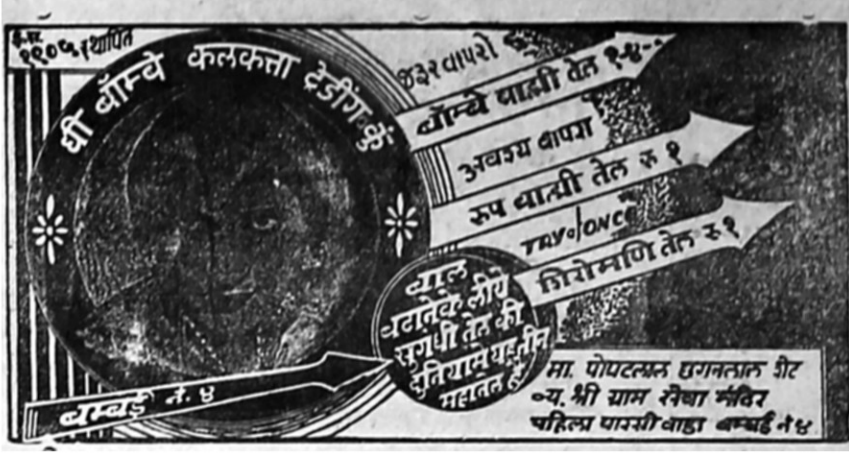 ई.स.
१९०६ स्थापित
धी बॉम्बे कलकत्ता ट्रेडींग कुं
જરૂર વાપરો
बॉम्बे ब्राह्मी तेल १-४-०
अवश्य वापरा
रुप ब्राह्मी तेल रु १
TRY ONCE
शिरोमणि तेल रु १
बाल
बढानेके लीये
सुगंधी तेल की
दुनियामे यह तीन
महातेल है
बम्बई नं. ४
मा. पोपटलाल छगनलाल शेट
व्य. श्री ग्राम सेवा मंदिर
पहिला पारसी वाडा बम्बई नं ४